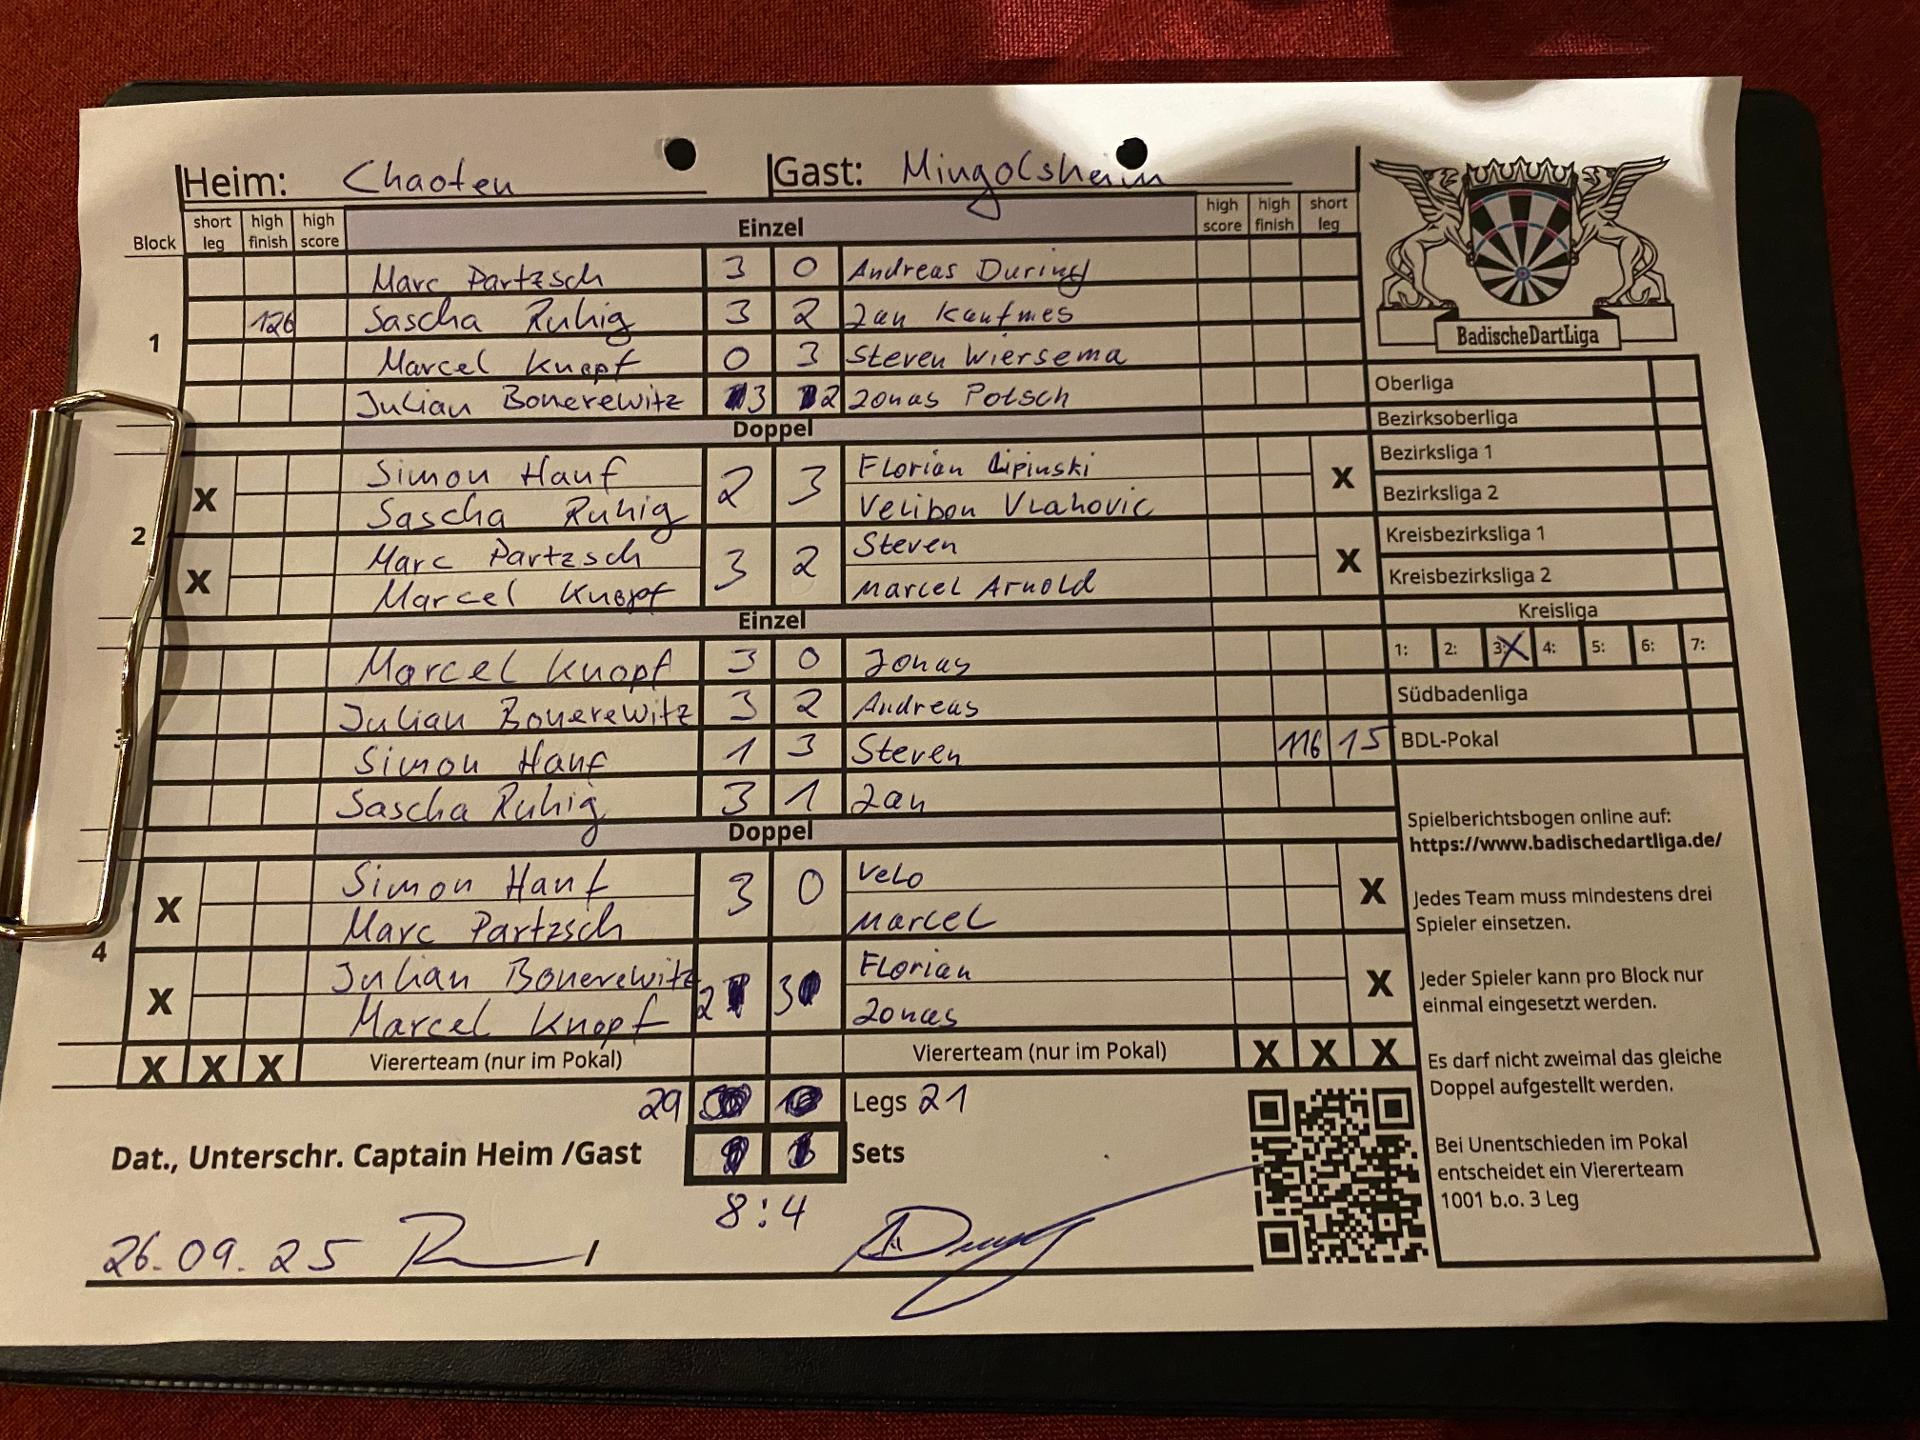 Heim: Chaoten Gast: Mingolsheim
Block short leg high finish high score Einzel high score high finish short leg
1
Marc Partzsch 3 0 Andreas During
126 Sascha Ruhig 3 2 Jan Kaufmes
Marcel Knopf 0 3 Steven Wiersema
Julian Bonerewitz 3 2 Jonas Potsch
Doppel
2
X Simon Hauf 2 3 Florian Lipinski X
Sascha Ruhig Velibon Vlahovic
X Marc Partzsch 3 2 Steven X
Marcel Knopf Marcel Arnold
Einzel
Marcel Knopf 3 0 Jonas
Julian Bonerewitz 3 2 Andreas
Simon Hauf 1 3 Steven 116 15
Sascha Ruhig 3 1 Jan
Doppel
4
X Simon Hauf 3 0 Velo X
Marc Partzsch Marcel
X Julian Bonerewitz 2 3 Florian X
Marcel Knopf Jonas
X X X Viererteam (nur im Pokal) Viererteam (nur im Pokal) X X X
29 Legs 21
Dat., Unterschr. Captain Heim /Gast Sets
8:4
26.09.25
BadischeDartLiga
Oberliga
Bezirksoberliga
Bezirksliga 1
Bezirksliga 2
Kreisbezirksliga 1
Kreisbezirksliga 2
Kreisliga
1: 2: 3: X 4: 5: 6: 7:
Südbadenliga
BDL-Pokal
Spielberichtsbogen online auf:
https://www.badischedartliga.de/
Jedes Team muss mindestens drei
Spieler einsetzen.
Jeder Spieler kann pro Block nur
einmal eingesetzt werden.
Es darf nicht zweimal das gleiche
Doppel aufgestellt werden.
Bei Unentschieden im Pokal
entscheidet ein Viererteam
1001 b.o. 3 Leg